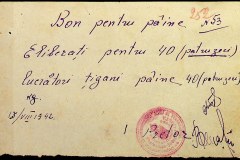 252
Bon pentru pâine N 53
Eliberați pentru 40 (patruzeci)
lucrători țigani pâine 40 (patruzeci)
kg.
18/VIII 1942.
Pretor